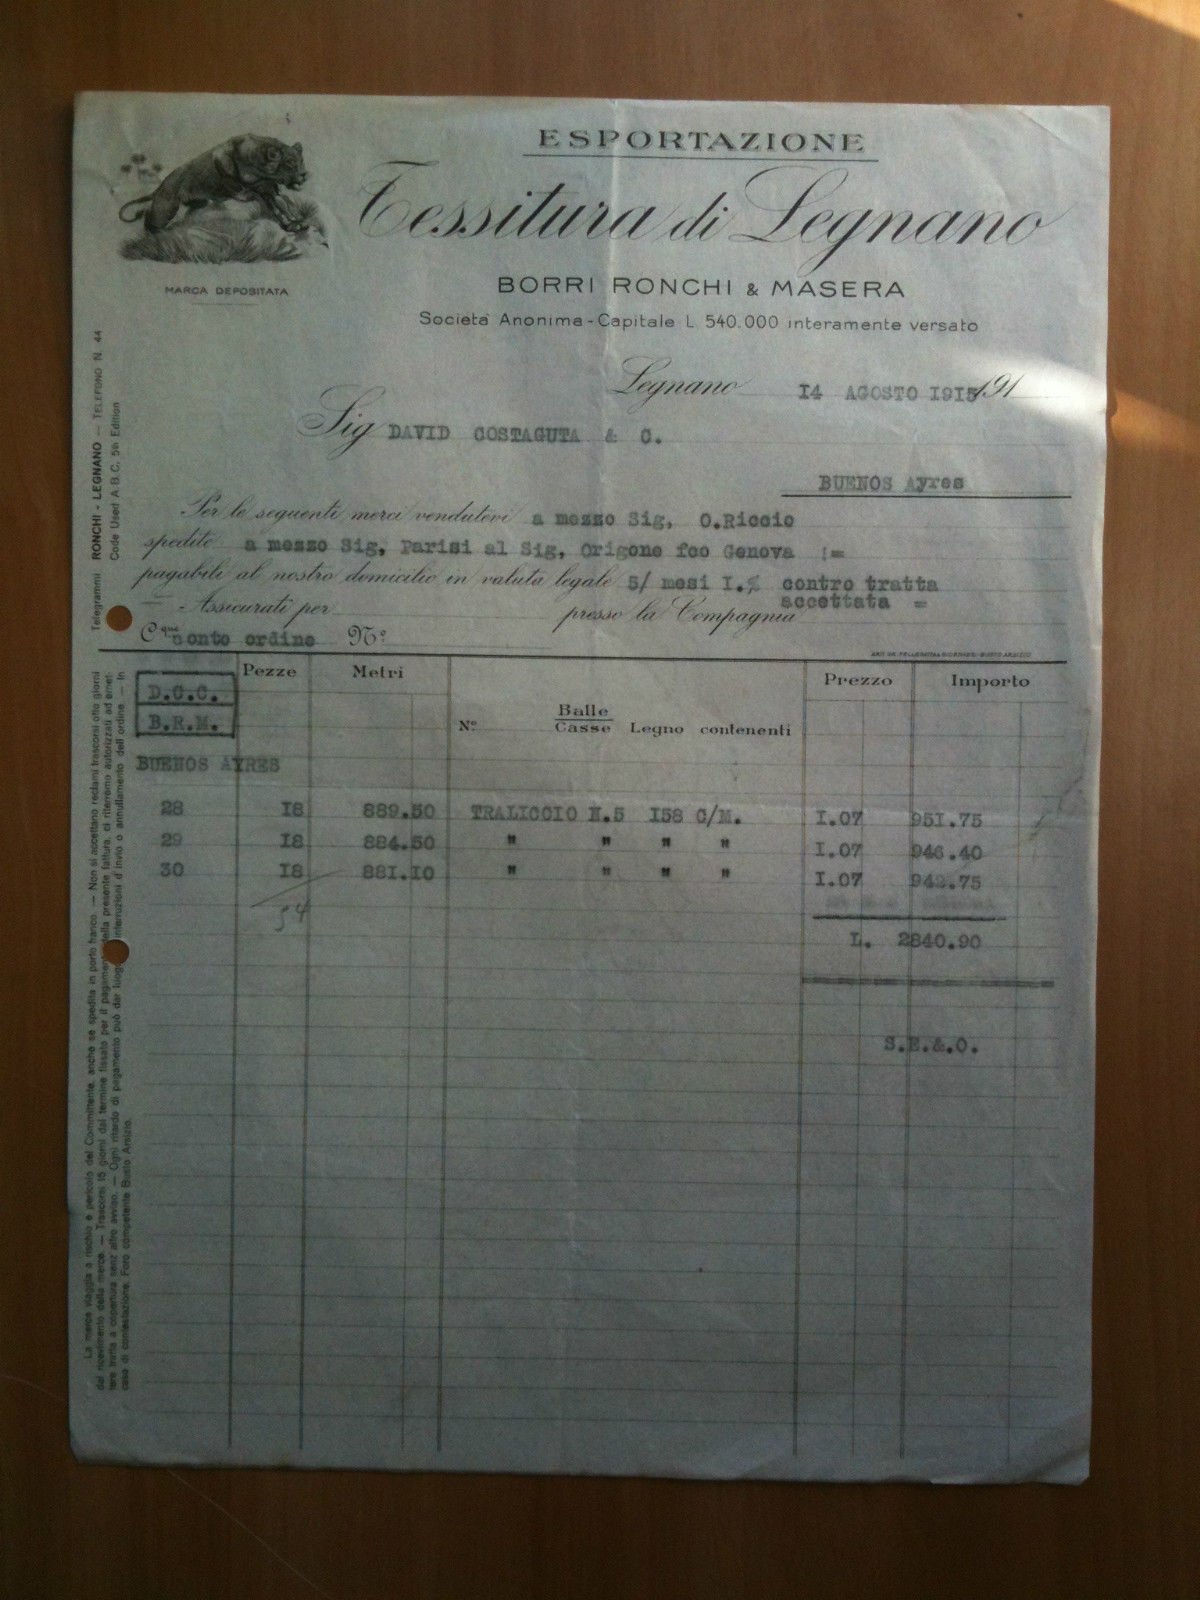 ESPORTAZIONE
Tessitura di Legnano
BORRI RONCHI & MASERA
Società Anonima - Capitale L. 540.000 interamente versato
MARCA DEPOSITATA
Telegrammi RONCHI - LEGNANO — TELEFONO N. 44
Code Used A.B.C. 5th Edition
Legnano 14 AGOSTO 1915 191
Sig DAVID COSTAGUTA & C.
BUENOS Ayres
Per le seguenti merci vendutevi a mezzo Sig, O.Riccio
spedite a mezzo Sig, Parisi al Sig, Origone fco Genova !=
pagabili al nostro domicilio in valuta legale 5/ mesi I.% contro tratta
accettata =
Assicurati per presso la Compagnia
C conto ordine N.º
Pezze Metri Prezzo Importo
D.C.C.
B.R.M.
Nº Balle Casse Legno contenenti
BUENOS AYRES
28 I8 889.50 TRALICCIO N.5 I58 C/M. I.07 951.75
29 I8 884.50 " " " " I.07 946.40
30 I8 88I.I0 " " " " I.07 942.75
54
L. 2840.90
S.E.&.O.
La merce viaggia a rischio e pericolo del Committente, anche se spedita in porto franco. — Non si accettano reclami trascorsi otto giorni
dal ricevimento della merce. — Trascorsi 15 giorni dal termine fissato per il pagamento della presente fattura, ci riterremo autorizzati ad emet
tere tratta a copertura senz'altro avviso. — Ogni ritardo di pagamento può dar luogo interruzioni d'invio o annullamento dell'ordine. — In
caso di contestazione, Foro competente Busto Arsizio.